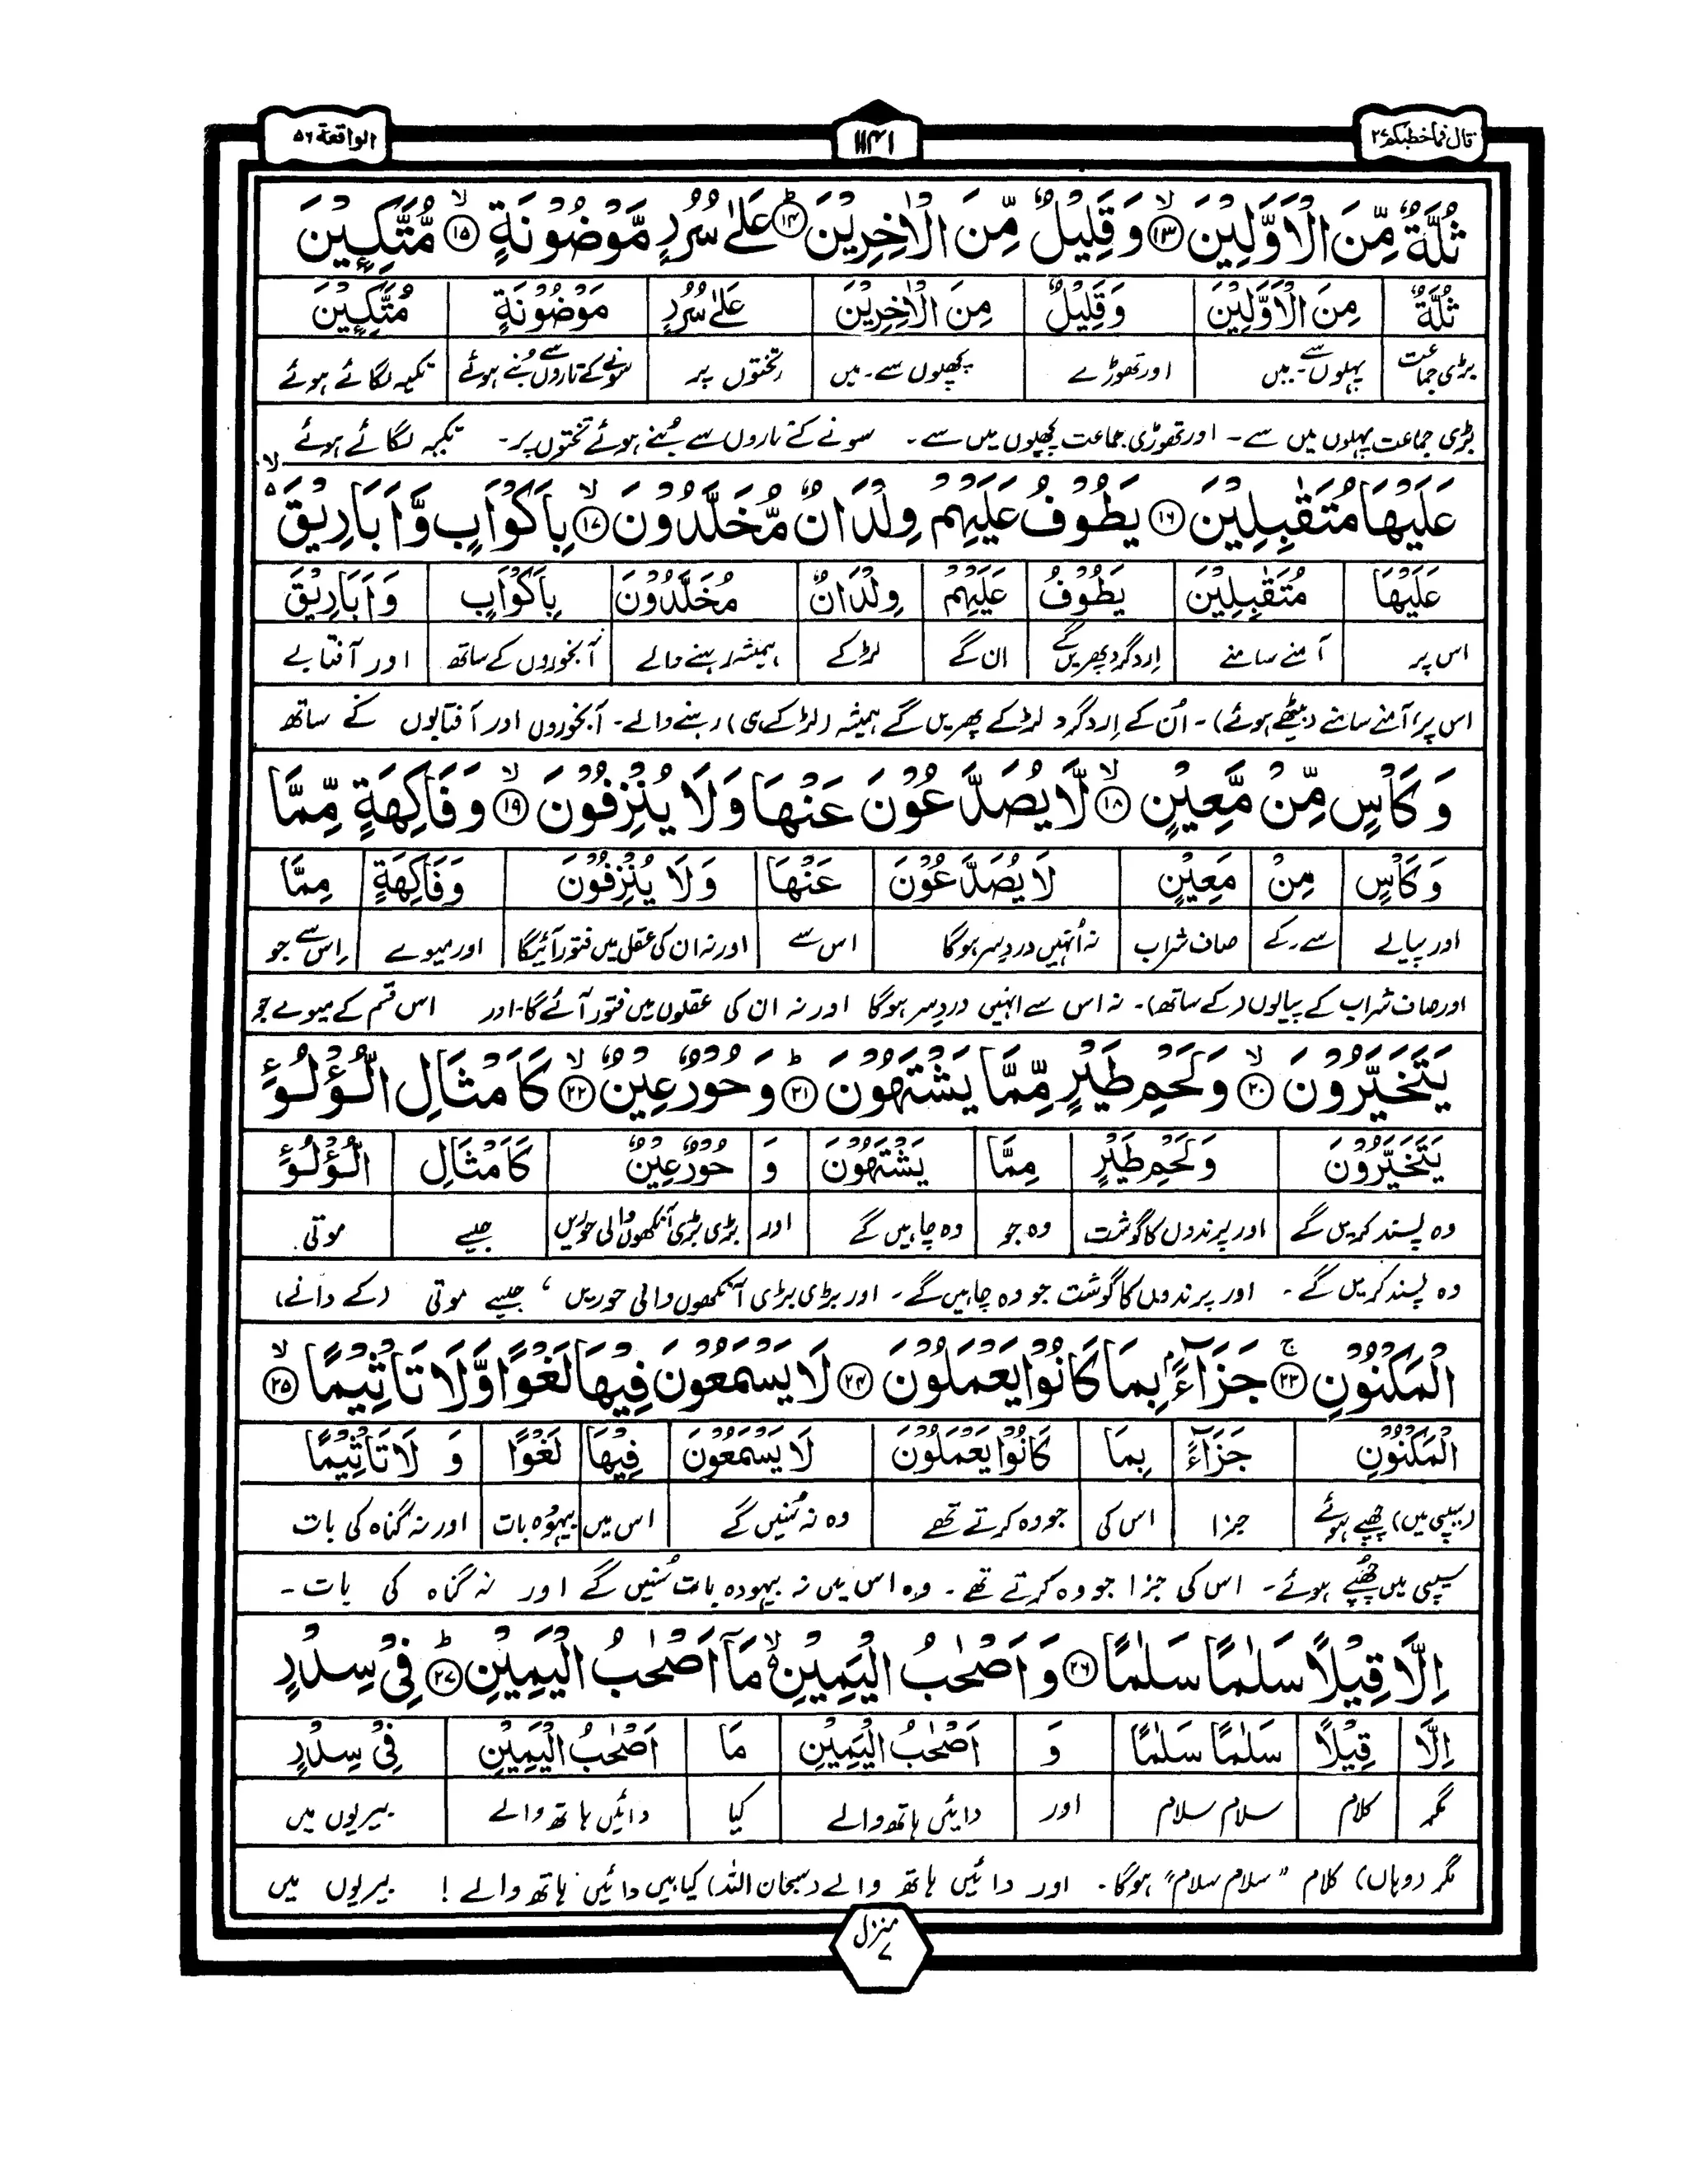 قال فما خطبکم ۲۷
۱۱۴۱
الواقعة ۵۶
ثُلَّةٌ مِّنَ الْاَوَّلِيْنَ ۙ﴿۱۳﴾ وَقَلِيْلٌ مِّنَ الْاٰخِرِيْنَ ؕ﴿۱۴﴾ عَلٰى سُرُرٍ مَّوْضُوْنَةٍ ۙ﴿۱۵﴾ مُّتَّكِـِٕيْنَ
ثُلَّةٌ | مِنَ الْاَوَّلِيْنَ | وَقَلِيْلٌ | مِنَ الْاٰخِرِيْنَ | عَلٰى سُرُرٍ | مَوْضُوْنَةٍ | مُتَّكِـِٕيْنَ
بڑی جماعت | پہلوں سے۔میں | اور تھوڑے | پچھلوں سے۔میں | تختوں پر | سونے کے تاروں سے بُنے ہوئے | تکیہ لگائے ہوئے
بڑی جماعت پہلوں میں سے۔ اور تھوڑی جماعت پچھلوں میں سے۔ سونے کے تاروں سے بُنے ہوئے تختوں پر۔ تکیہ لگائے ہوئے
عَلَيْهَا مُتَقٰبِلِيْنَ ﴿۱۶﴾ يَطُوْفُ عَلَيْهِمْ وِلْدَانٌ مُّخَلَّدُوْنَ ۙ﴿۱۷﴾ بِاَكْوَابٍ وَّاَبَارِيْقَ ۙ۬
عَلَيْهَا | مُتَقٰبِلِيْنَ | يَطُوْفُ | عَلَيْهِمْ | وِلْدَانٌ | مُخَلَّدُوْنَ | بِاَكْوَابٍ | وَاَبَارِيْقَ
اس پر | آمنے سامنے | اِردگرد پھریں گے | ان کے | لڑکے | ہمیشہ رہنے والے | آبخوروں کے ساتھ | اور آفتابے
اس پر آمنے سامنے (بیٹھے ہوئے)۔ اُن کے اِردگرد لڑکے پھریں گے ہمیشہ (لڑکے ہی) رہنے والے۔ آبخوروں اور آفتابوں کے ساتھ
وَكَاْسٍ مِّنْ مَّعِيْنٍ ۙ﴿۱۸﴾ لَّا يُصَدَّعُوْنَ عَنْهَا وَلَا يُنْزِفُوْنَ ۙ﴿۱۹﴾ وَفَاكِهَةٍ مِّمَّا
وَكَاْسٍ | مِنْ | مَعِيْنٍ | لَا يُصَدَّعُوْنَ | عَنْهَا | وَلَا يُنْزِفُوْنَ | وَفَاكِهَةٍ | مِمَّا
اور پیالے | سے۔کے | صاف شراب | نہ اُنہیں دردِ سر ہوگا | اس سے | اور نہ ان کی عقل میں فتور آئیگا | اور میوے | اِس سے جو
اور صاف شراب کے پیالوں (کے ساتھ)۔ نہ اس سے انہیں دردِ سر ہوگا اور نہ ان کی عقلوں میں فتور آئے گا۔ اور اس قسم کے میوے جو
يَتَخَيَّرُوْنَ ۙ﴿۲۰﴾ وَلَحْمِ طَيْرٍ مِّمَّا يَشْتَهُوْنَ ؕ﴿۲۱﴾ وَحُوْرٌ عِيْنٌ ۙ﴿۲۲﴾ كَاَمْثَالِ اللُّؤْلُؤِ
يَتَخَيَّرُوْنَ | وَلَحْمِ طَيْرٍ | مِمَّا | يَشْتَهُوْنَ | وَ | حُوْرٌ عِيْنٌ | كَاَمْثَالِ | اللُّؤْلُؤِ
وہ پسند کریں گے | اور پرندوں کا گوشت | وہ جو | وہ چاہیں گے | اور | بڑی بڑی آنکھوں والی حوریں | جیسے | موتی
وہ پسند کریں گے۔ اور پرندوں کا گوشت جو وہ چاہیں گے۔ اور بڑی بڑی آنکھوں والی حوریں، جیسے موتی (کے دانے)
الْمَكْنُوْنِ ۚ﴿۲۳﴾ جَزَآءًۢ بِمَا كَانُوْا يَعْمَلُوْنَ ﴿۲۴﴾ لَا يَسْمَعُوْنَ فِيْهَا لَغْوًا وَّلَا تَاْثِيْمًا ۙ﴿۲۵﴾
الْمَكْنُوْنِ | جَزَآءً | بِمَا | كَانُوْا يَعْمَلُوْنَ | لَا يَسْمَعُوْنَ | فِيْهَا | لَغْوًا | وَ لَا تَاْثِيْمًا
(سیپی میں) چھپے ہوئے | جزا | اس کی | جو وہ کرتے تھے | وہ نہ سُنیں گے | اس میں | بیہودہ بات | اور نہ گناہ کی بات
سیپی میں چھُپے ہوئے۔ اس کی جزا جو وہ کرتے تھے۔ وہ اس میں نہ بیہودہ بات سُنیں گے اور نہ گناہ کی بات۔
اِلَّا قِيْلًا سَلٰمًا سَلٰمًا ﴿۲۶﴾ وَاَصْحٰبُ الْيَمِيْنِ ۙ۬ مَاۤ اَصْحٰبُ الْيَمِيْنِ ؕ﴿۲۷﴾ فِيْ سِدْرٍ
اِلَّا | قِيْلًا | سَلٰمًا سَلٰمًا | وَ | اَصْحٰبُ الْيَمِيْنِ | مَا | اَصْحٰبُ الْيَمِيْنِ | فِيْ سِدْرٍ
مگر | کلام | سلام سلام | اور | دائیں ہاتھ والے | کیا | دائیں ہاتھ والے | بیریوں میں
مگر (وہاں) کلام "سلام سلام" ہوگا۔ اور دائیں ہاتھ والے (سبحان اللہ) کیا ہیں دائیں ہاتھ والے! بیریوں میں
منزل ۷